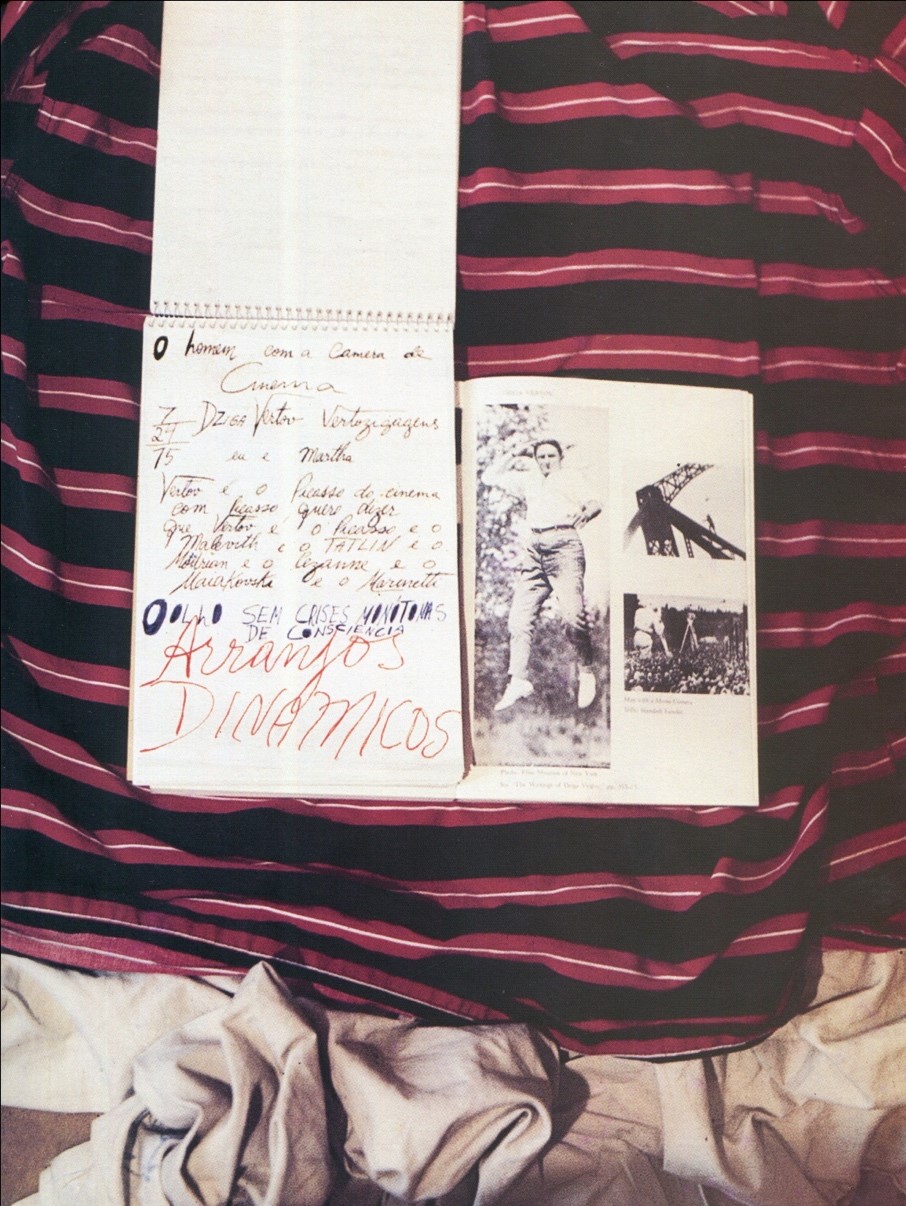 O homem com a camera de
Cinema
7 Dziga Vertov Vertozigagens
24
75 eu e Martha
Vertov é o Picasso do cinema
com Picasso quero dizer
que Vertov é o Picasso e o
Malevith e o TATLIN e o
Modrian e o Cézanne e o
Maiakovski e o Marinetti
O OLHO SEM CRISES MONÓTONAS
DE CONSCIÊNCIA
Arranjos
DINAMICOS
DZIGA VERTOV
Man with a Movie Camera
Stills: Standish Lawder
Photo: Film Museum of New York
See "The Writings of Dziga Vertov," pp.